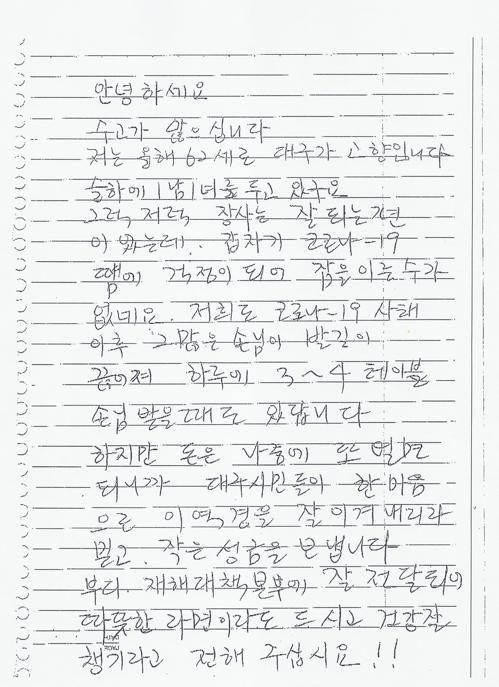 안녕하세요
수고가 많으십니다
저는 올해 62세로 대구가 고향입니다
슬하에 1남1녀를 두고 있구요
그럭저럭 장사는 잘 되는 편
이 였는데. 갑자기 코로나-19
땜에 걱정이 되어 잠을 이룰수가
없네요. 저희도 코로나-19 사태
이후 그 많은 손님이 발길이
끊어져 하루에 3~4 테이블
손님 받을때도 있답니다
하지만 돈은 나중에 또 벌면
되니까 대구시민들이 한마음
으로 이 역경을 잘 이겨내리라
믿고. 작은 성금을 보냅니다
부디. 재해대책본부에 잘 전달되어
따뜻한 라면이라도 드시고 건강잘
챙기라고 전해 주십시요!!